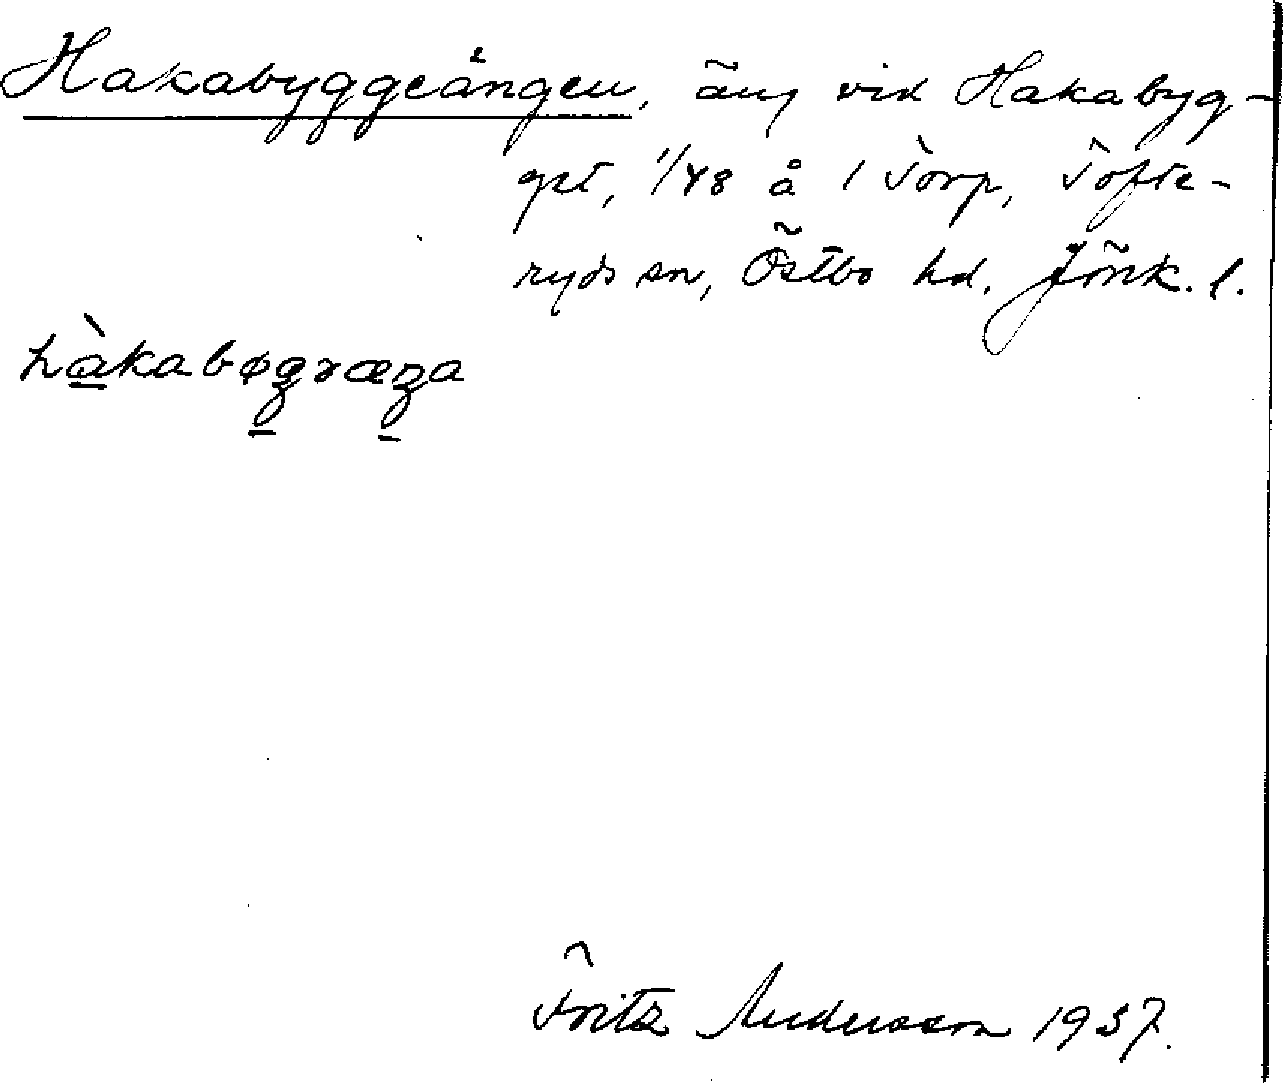 Hakabyggeängen, äng vid Hakabyg-
get, 1/48 å 1 Torp, Tofte-
ryds sn, Östbo hd. Jönk. l.
hàkabøgræŋa
Fritz Andersson 1937.